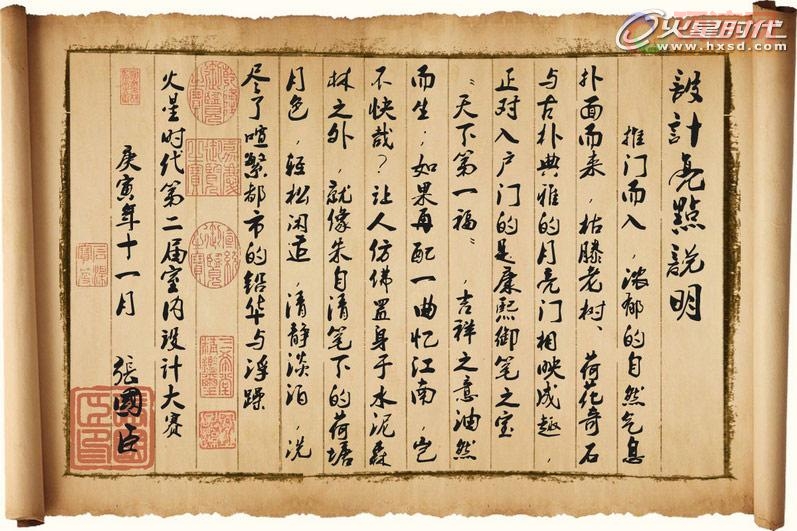 火星时代
www.hxsd.com
設計亮點說明
推门而入，浓郁的自然气息
扑面而来，枯藤老树、荷花奇石
与古朴典雅的月亮门相映成趣，
正对入户门的是康熙御笔之宝
“天下第一福”，吉祥之意油然
而生；如果再配一曲忆江南，岂
不快哉？让人仿佛置身于水泥森
林之外，就像朱自清笔下的荷塘
月色，轻松闲适，清静淡泊，洗
尽了喧繁都市的铅华与浮躁
火星时代第二届室内设计大赛
庚寅年十一月 張國臣